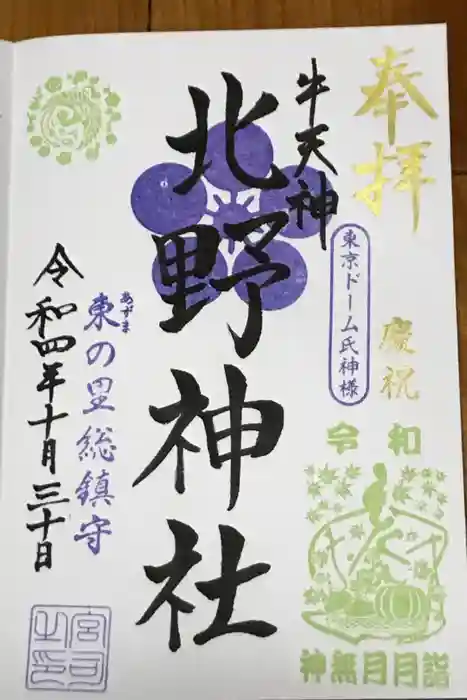 奉拝
慶祝
令和
神無月月詣
東京ドーム氏神様
牛天神
北野神社
あずま
東の里総鎮守
令和四年十月三十日
宮司之印